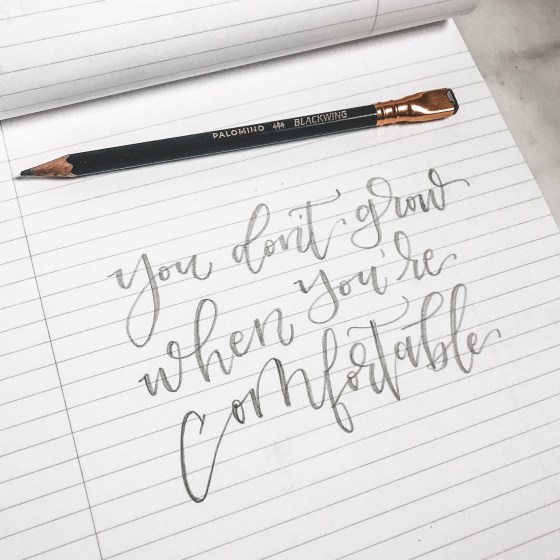 PALOMINO BLACKWING
you don't grow
when you're
comfortable